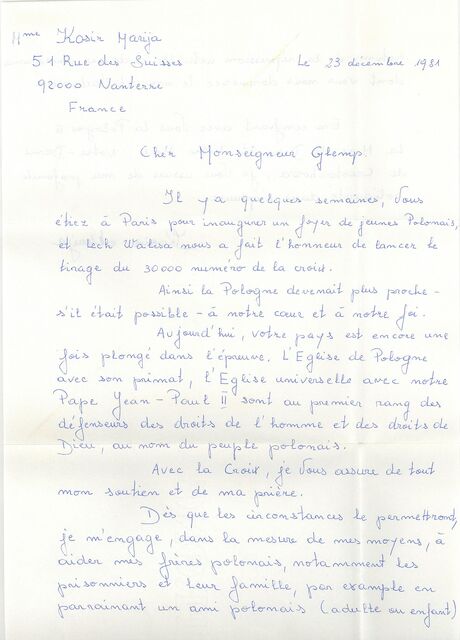 Mme Kosir Marija
51 Rue des Suisses
Le 23 décembre 1981
92000 Nanterre
France
Cher Monseigneur Glemp.
Il y a quelques semaines, Vous
étiez à Paris pour inaugurer un foyer de jeunes Polonais,
et Lech Walesa nous a fait l'honneur de lancer le
tirage du 30000 numéro de la croix.
Ainsi la Pologne devenait plus proche -
s'il était possible - à notre cœur et à notre foi.
Aujourd'hui, votre pays est encore une
fois plongé dans l'épreuve. L'Eglise de Pologne
avec son primat, l'Eglise universelle avec notre
Pape Jean-Paul II sont au premier rang des
défenseurs des droits de l'homme et des droits de
Dieu, au nom du peuple polonais.
Avec la Croix, je Vous assure de tout
mon soutien et de ma prière.
Dès que les circonstances le permettrond,
je m'engage, dans la mesure de mes moyens, à
aider mes frères polonais, notamment les
prisonniers et leur famille, par exemple en
parrainant un ami polonais (adulte ou enfant)